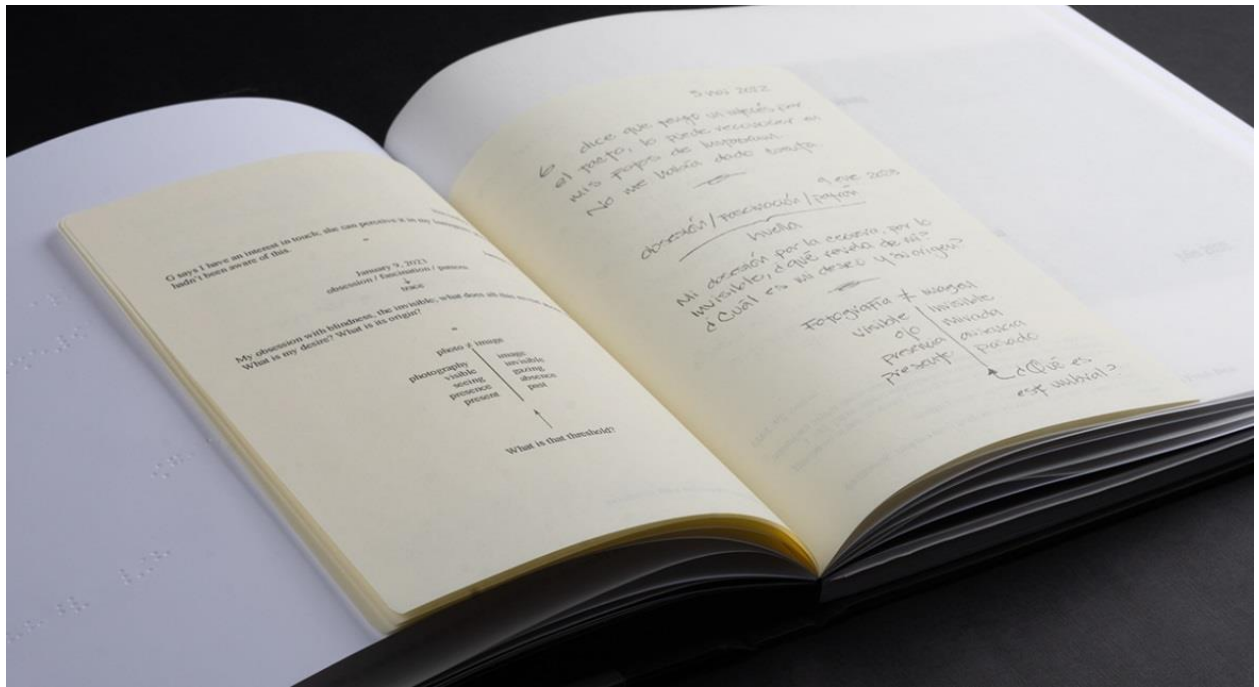 G says I have an interest in touch, she can perceive it in my
hadn't been aware of this.
January 9, 2023
obsession / fascination / pattern
↓
trace
My obsession with blindness, the invisible, what does all this
What is my desire? What is its origin?
photo ≠ image
photography image
visible invisible
seeing gazing
presence absence
present past
What is that threshold?
2022
G dice que tengo un interés por
el tacto, lo puede reconocer en
mis fotos de
No me había dado cuenta.
9 ene 2023
obsesión / fascinación / patrón
huella
Mi obsesión por la ceguera, por lo
invisible, ¿qué revela de mí?
¿Cuál es mi deseo y su origen?
Fotografía ≠ imagen
visible invisible
ojo mirada
presencia ausencia
presente pasado
¿Qué es
ese umbral?